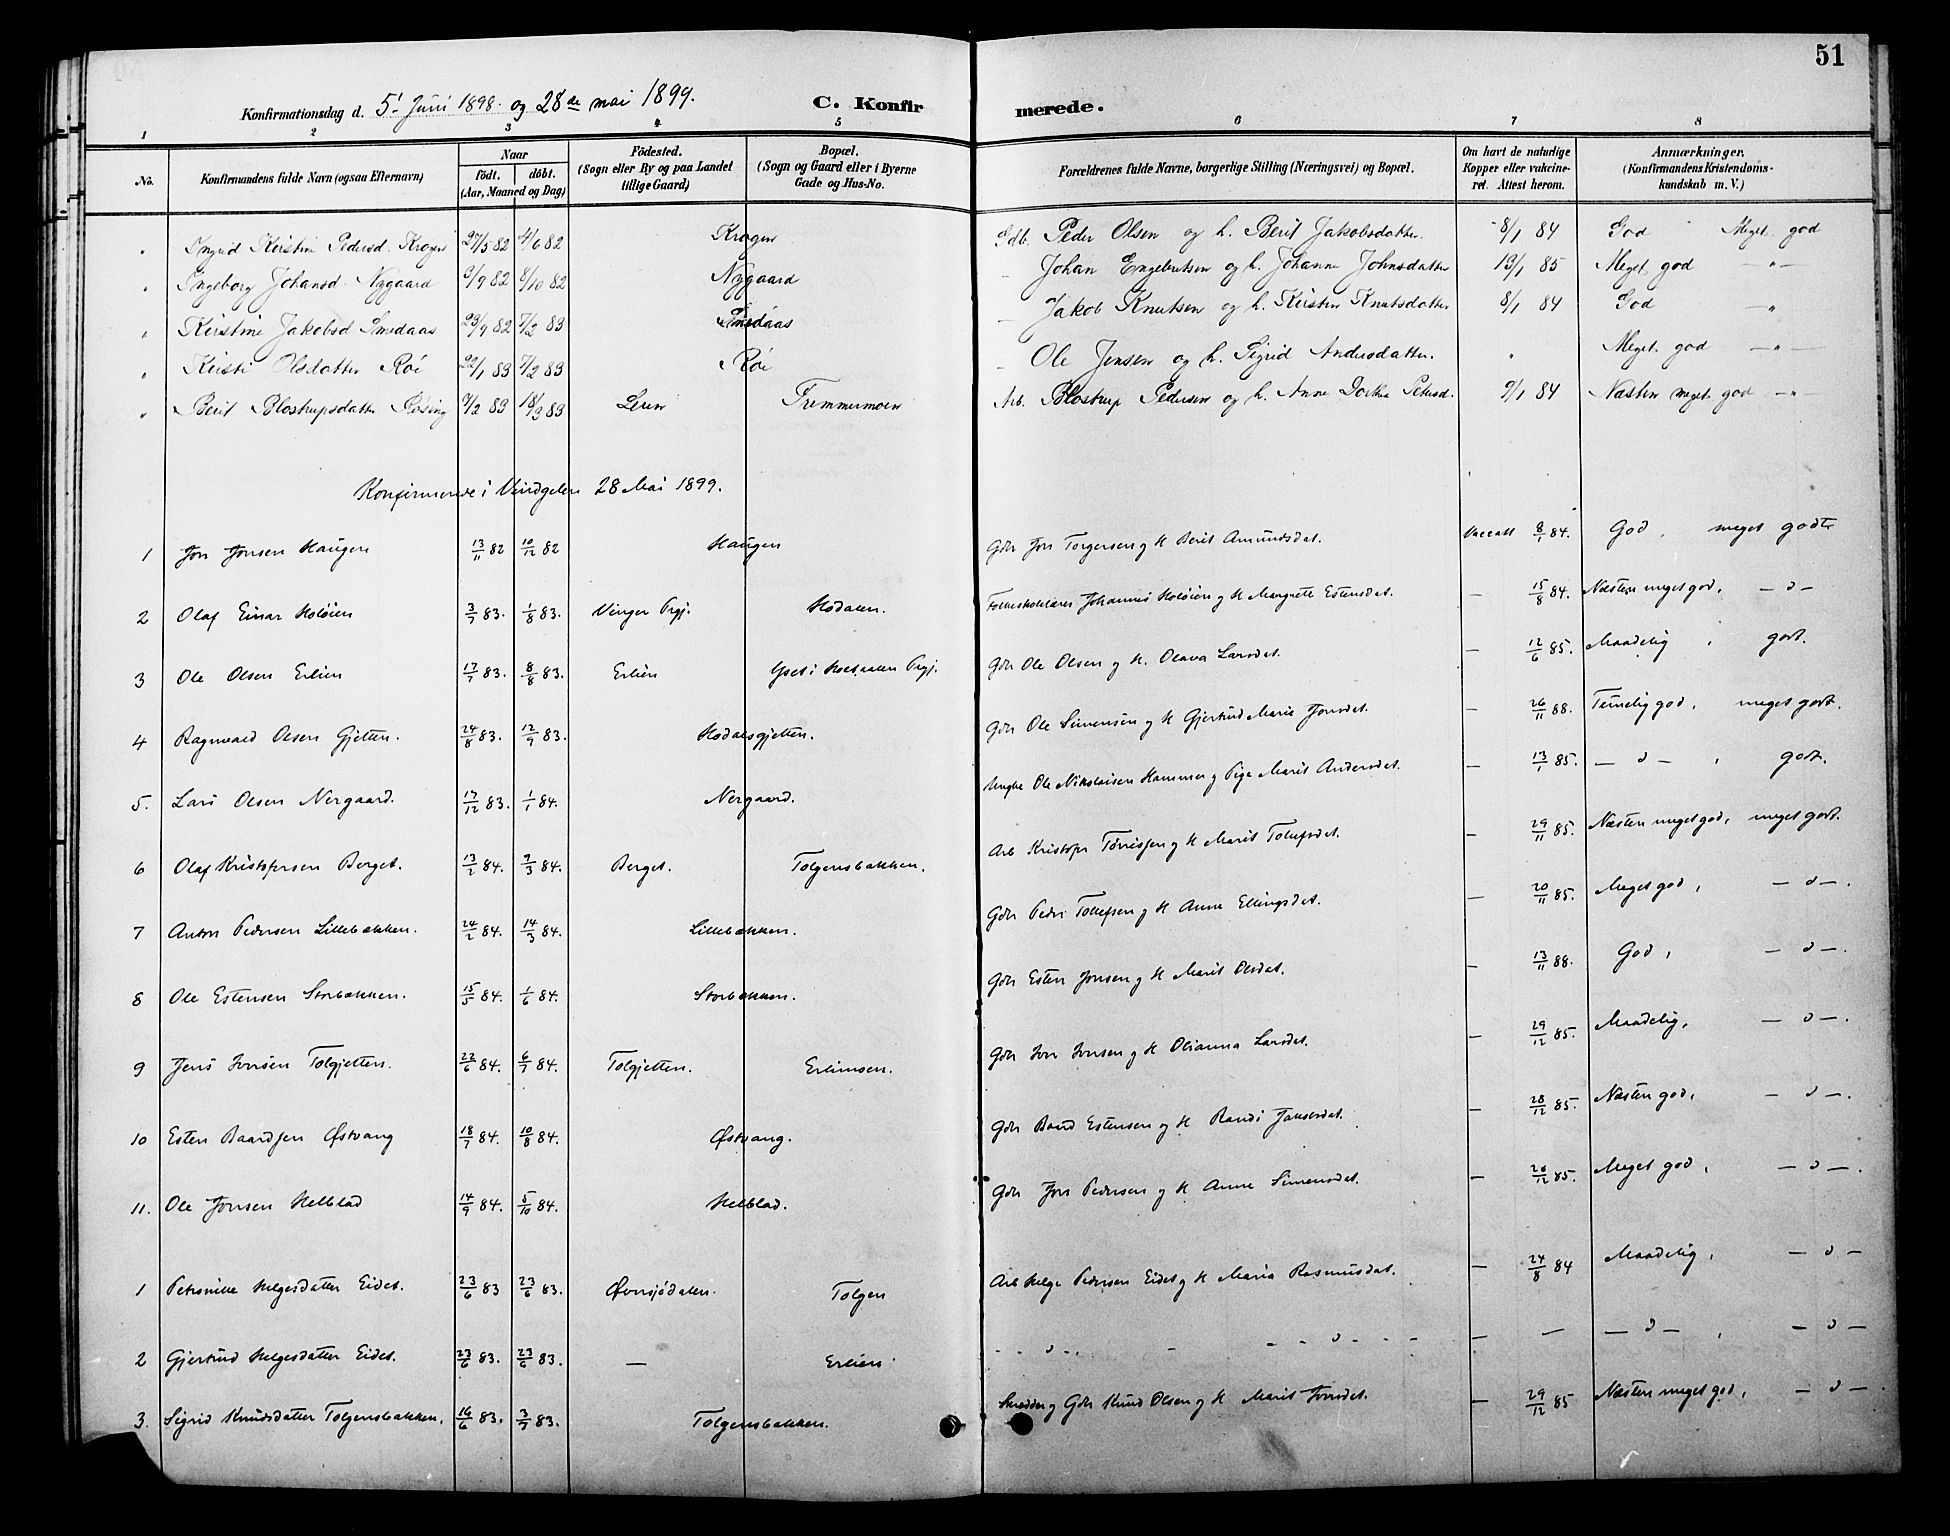 51
Konfirmationsdag d. 5' Juni 1898. og 28de mai 1899. C. Konfirmerede.
1 2 3 4 5 6 7 8
No. Konfirmandens fulde Navn (ogsaa Efternavn) Naar født. døbt. (Aar, Maaned og Dag) Födested. (Sogn eller By og paa Landet tillige Gaard) Bopæl. (Sogn og Gaard eller i Byerne Gade og Hus-No. Forældrenes fulde Navne, borgerlige Stilling (Næringsvei) og Bopæl. Om havt de naturlige Kopper eller vakcineret. Attest herom. Anmærkninger. (Konfirmandens Kristendomskundskab m. V.)
" Ingrid Kirstine Pedersd. Krogen 27/5 82 4/6 82 Krogen Gdb. Peder Olsen og h. Berit Jakobsdatter. 8/1 84 God Meget god
" Ingeborg Johansd. Nygaard 9/9 82 8/10 82 Nygaard – Johan Engebretsen og h. Johanne Johnsdatter 13/1 85 Meget god – " –
" Kirstine Jakobsd Smedaas 23/9 82 7/2 83 Smedaas – Jakob Knutsen og h. Kirsten Knutsdatter 8/1 84 God "
" Kirsti Olsdatter Röi 22/1 83 7/2 83 Röi – Ole Jensen og h. Sigrid Andersdatter. " Meget god – " –
" Berit Blostrupsdatter Røsing 9/2 83 18/3 83 Leren Tremmermoen Arb. Blostrup Pedersen og h. Anne Dorthea Petersd. 9/1 84 Næsten meget god – " –
Konfirmerede i Vindgelen 28 Mai 1899.
1 Jon Jonsen Haugen 13/11 82 10/12 82 Haugen Gdr Jon Torgersen og H Berit Amundsdat. Vaccatt 8/1 84. God, meget godt
2 Olaf Einar Holöien 3/7 83. 1/8 83. Vinger Prgj. Hodalen. Folkeskolelærer Johannes Holöien og H Margrete Estensdat. — 15/8 84. Næsten meget god, — d —
3 Ole Olsen Erlien 17/7 83. 8/8 83. Erlien Yset i Kvikne Prgj. Gdr Ole Olsen og H. Olava Larsdat. — 12/6 85. Maadelig, godt.
4 Ragnvald Olsen Gjetten. 24/8 83. 12/9 83. Hodalsgjetten. Gdr Ole Simensen og H Gjertrud Marie Jonsdat. — 26/11 88. Temelig god, meget godt.
5. Lars Olsen Nergaard. 17/12 83. 1/1 84. Nergaard. Ungkr Ole Nikolaisen Hammer og Pige Marit Andersdat. — 13/1 85. — d — , godt.
6 Olaf Kristofersen Berget. 13/2 84. 9/3 84. Berget. Tolgensbakken. Arb Kristofer Tørrisen og H Marit Tollefsdat. — 29/11 85. Næsten meget god, meget godt.
7 Anton Pedersen Lillebækken. 24/2 84. 14/3 84. Lillebækken. Gdr Peder Tollefsen og H Anne Ellingsdat. — 20/11 85. Meget god, — d —.
8 Ole Estensen Storbækken. 15/5 84. 1/6 84. Storbækken. Gdr Esten Jonsen og H Marit Olsdat. — 13/11 88. God, — d —.
9 Jens Ivarsen Tolgjetten. 22/6 84. 6/7 84. Tolgjetten. Erlimoen. Gdr Ivar Ivarsen og H Olianna Larsdat. — 29/12 85. Maadelig, — d —.
10 Esten Baardsen Østvang 18/7 84. 10/8 84. Østvang. Gdr Baard Estensen og H Randi Jakobsdat. — 28/12 85. Næsten god, — d —.
11. Ole Jonsen Kelblad 14/9 84. 5/10 84. Kelblad. Gdr Jon Pedersen og H Anne Simensdat. — 26/12 85. Meget god, — d —.
1 Petronille Helgesdatter Eidet. 23/6 83 23/6 83. Øversjödalen. Tolgen Arb Helge Pedersen Eidet og H Maria Rasmusdat. — 24/8 84 Maadelig, — d —
2 Gjertrud Helgesdatter Eidet. 23/6 83. 23/6 83. — Erlien - - d - - - - d - - - — — — d — , — d —
3. Sigrid Knudsdatter Tolgensbakken. 16/6 83. 3/7 83. Tolgensbakken. Skredder og Gdr Knud Olsen og H Marit Jonsdat. — 29/12 85 Næsten meget god, — d —.